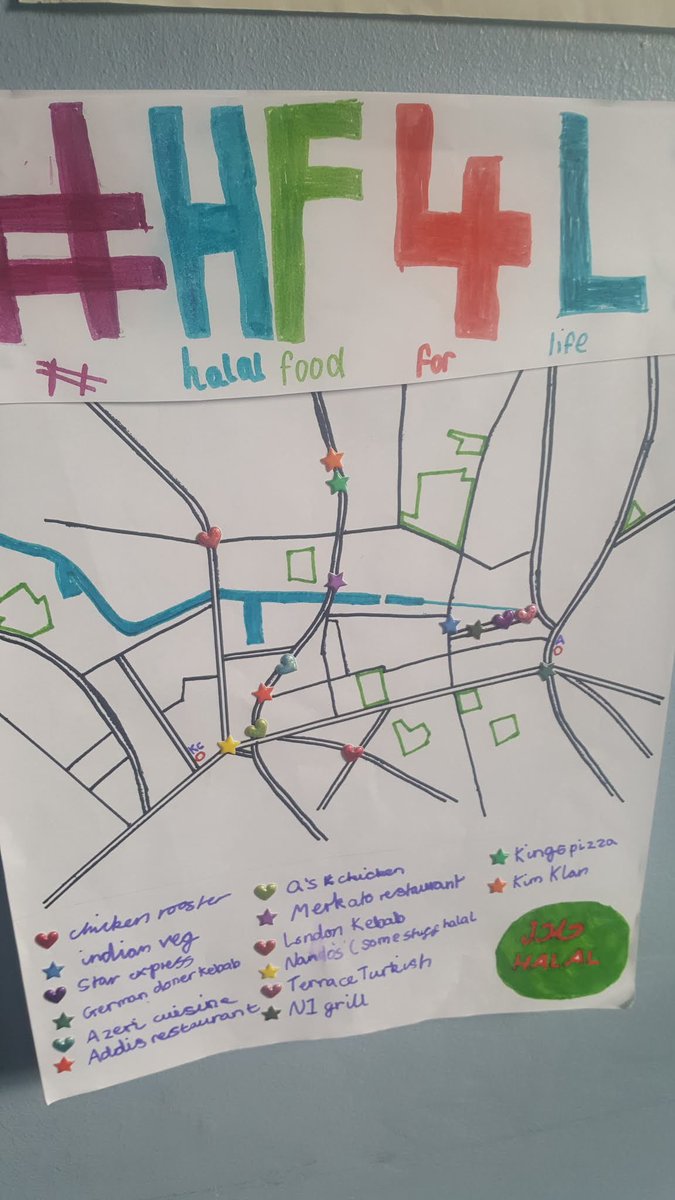 #HF4L
# halal food for life
KC
A
chicken rooster
indian veg
Star express
German doner kebab
Azeri cuisine
Addis restaurant
a's k chicken
Merkato restaurant
London Kebab
Nando's (some stuff halal
Terrace Turkish
N1 grill
Kings pizza
Kim Klan
حلال
HALAL